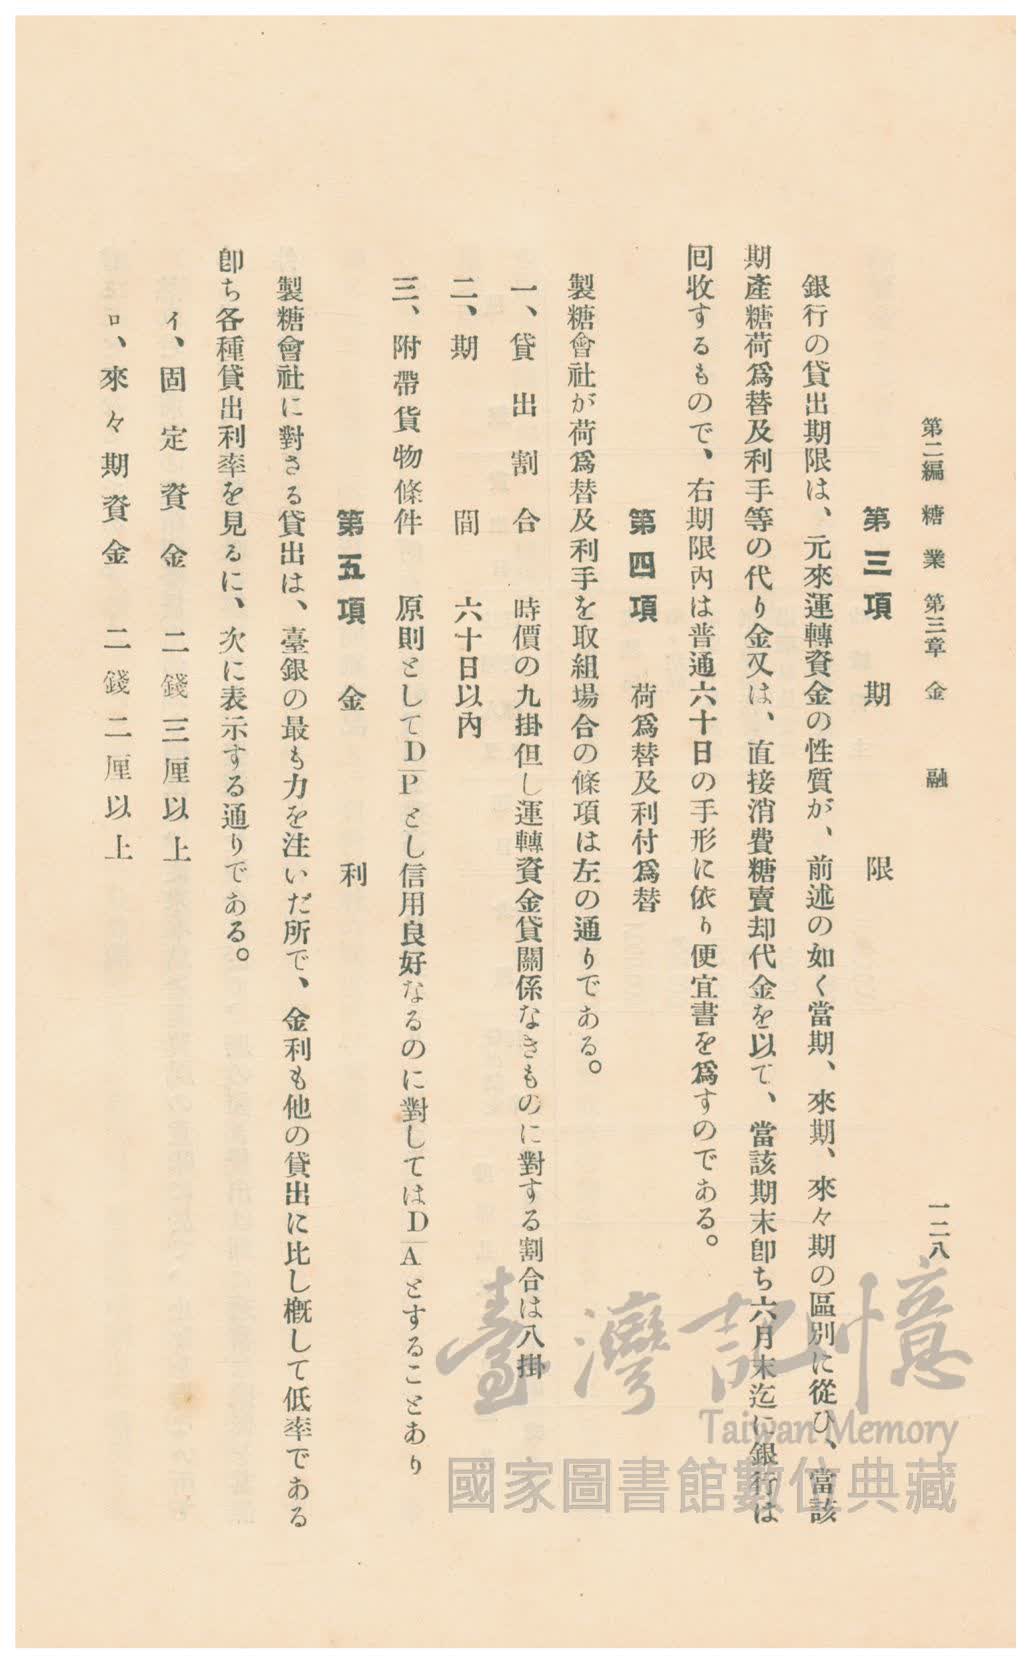 第二編 糖業 第三章 金融 一二八
第三項 期限
銀行の貸出期限は、元來運轉資金の性質が、前述の如く當期、來期、來々期の區別に從ひ、當該
期產糖荷爲替及利手等の代り金又は、直接消費糖賣却代金を以て、當該期末卽ち六月末迄に銀行は
回收するもので、右期限內は普通六十日の手形に依り便宜書を爲すのである。
第四項 荷爲替及利付爲替
製糖會社が荷爲替及利手を取組場合の條項は左の通りである。
一、貸出割合 時價の九掛但し運轉資金貸關係なきものに對する割合は八掛
二、期間 六十日以內
三、附帶貨物條件 原則としてD/Pとし信用良好なるのに對してはD/Aとすることあり
第五項 金利
製糖會社に對さる貸出は、臺銀の最も力を注いだ所で、金利も他の貸出に比し槪して低率である
卽ち各種貸出利率を見るに、次に表示する通りである。
イ、固定資金 二錢三厘以上
ロ、來々期資金 二錢二厘以上
臺灣記憶
Taiwan Memory
國家圖書館數位典藏